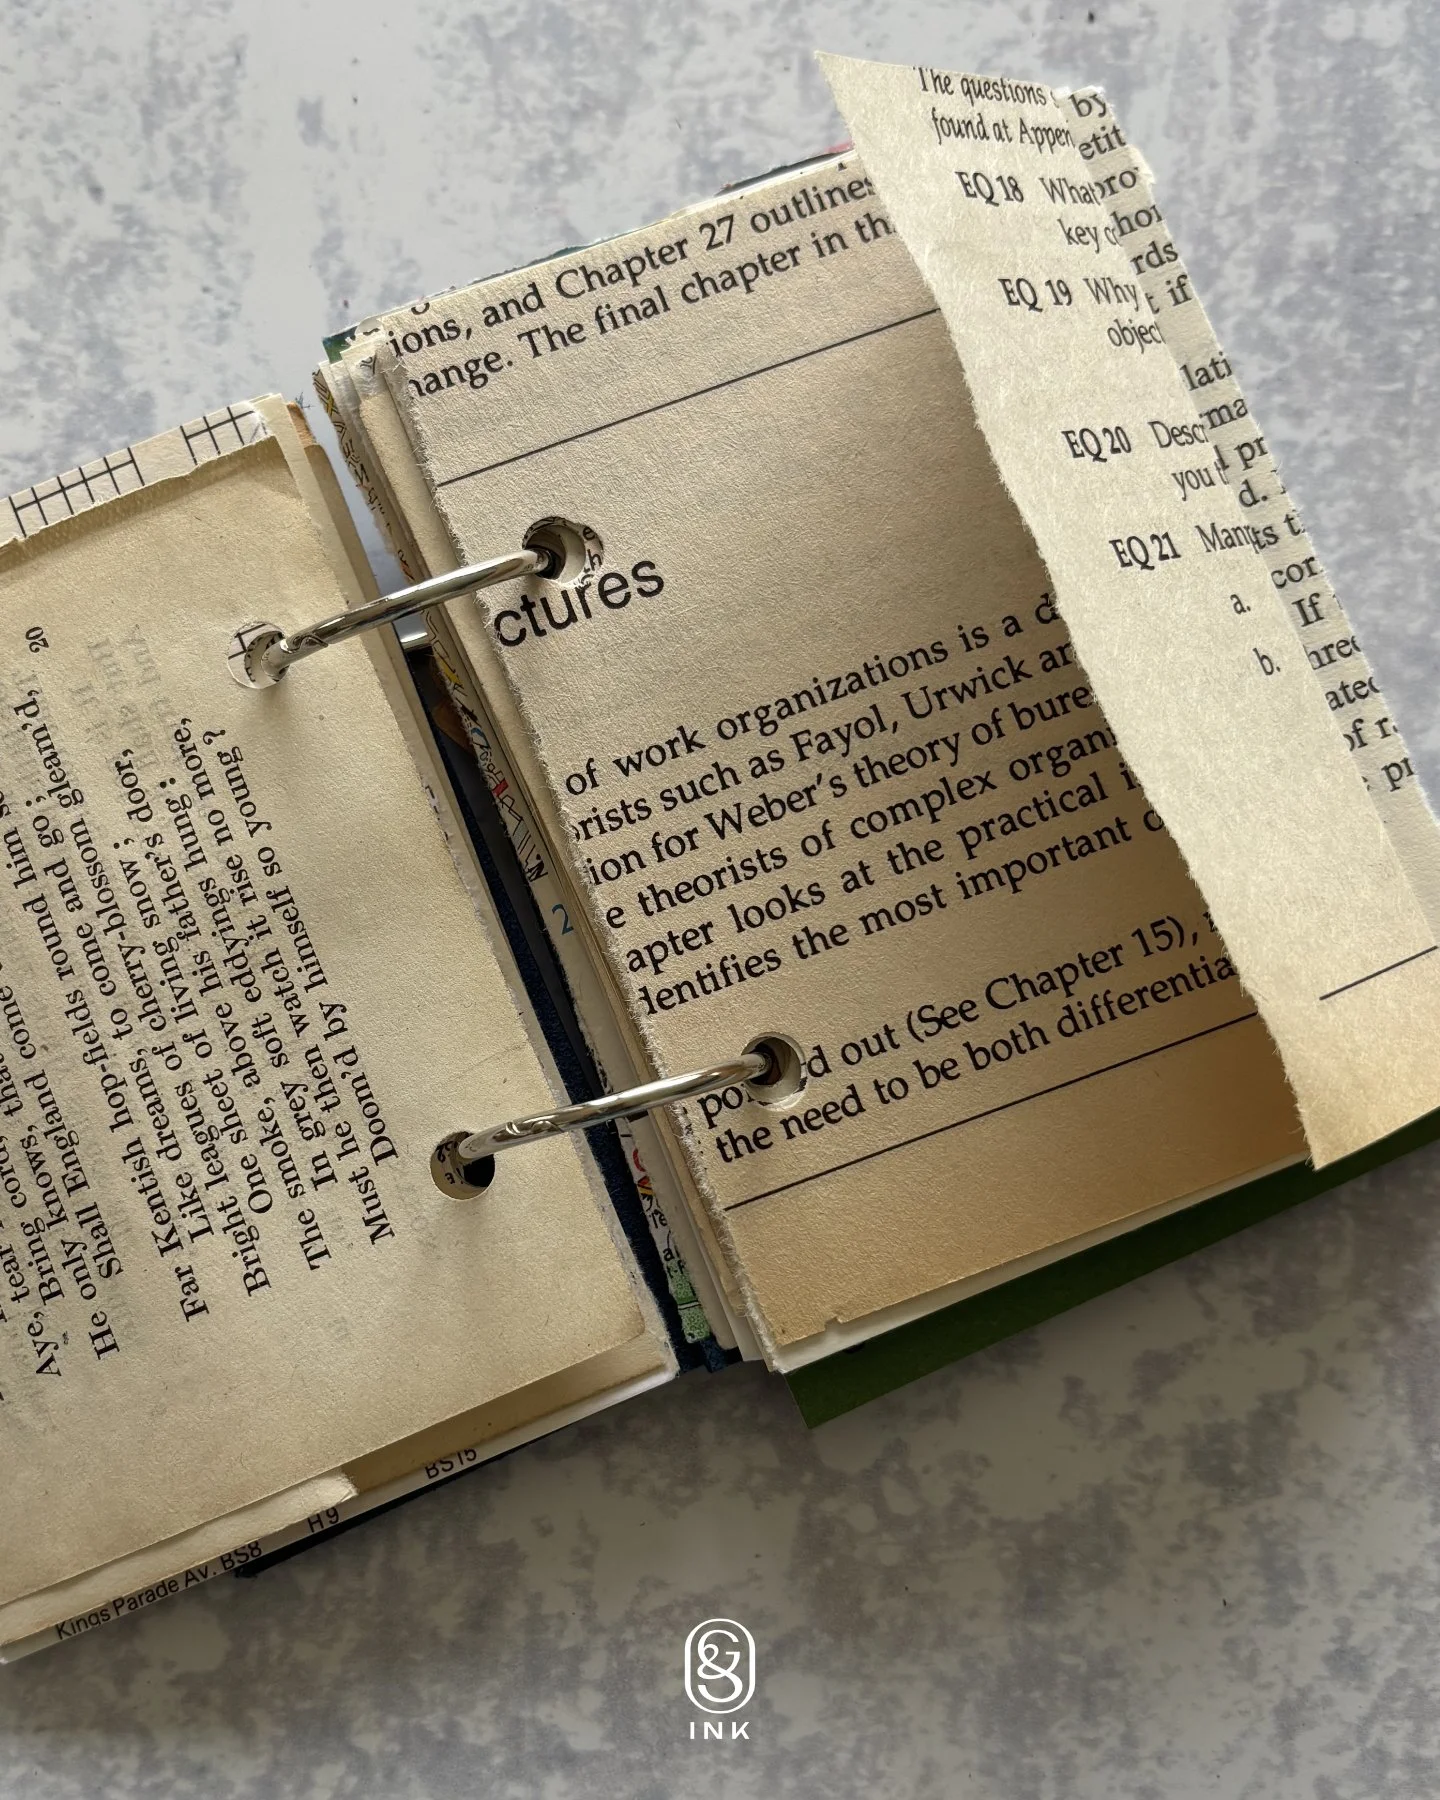 20
Aye, tear
Bring cord, tha
He only knows, tha
Shall England come
round him s
Far Kentish hop-fields round him
Like dreams, to come and go;
Bright leagues of cherry-blossom gleam'd,
One sheet of living snow;
The smoke, above his father's door,
In grey soft eddyings hung:
Must he then watch it rise no more,
Doom'd by himself so young?
BS15
H9
Kings Parade Av. BS8
2
ions, and Chapter 27 outlines
hange. The final chapter in th
ctures
of work organizations is a d
rists such as Fayol, Urwick an
ion for Weber's theory of bure
e theorists of complex organi
apter looks at the practical i
dentifies the most important
d out (See Chapter 15),
the need to be both differentia
The questions
found at Appen
EQ18 What
key c
EQ 19 Why
object
EQ20 Desc
you
EQ21 Mann
a.
b.
by
etit
pro
hor
rds
t if
lati
ma
l pr
d.
ts t
cor
If
hree
ated
of r
pr
INK